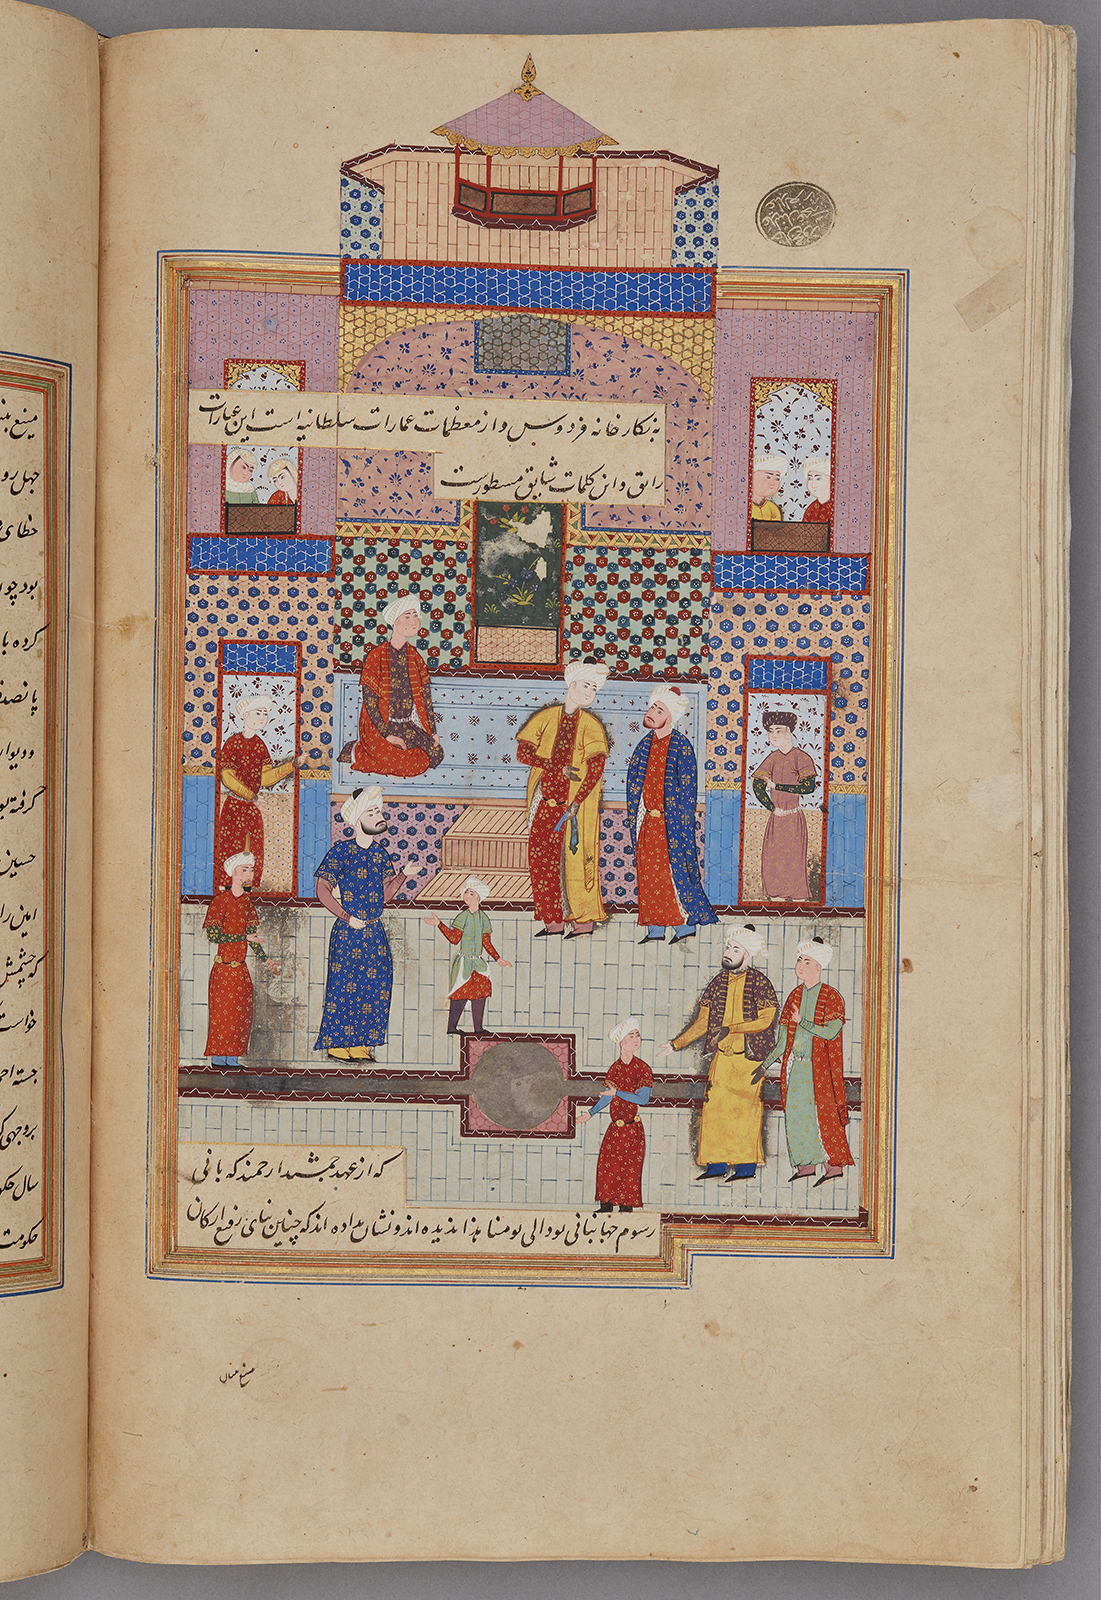 به نکار خانه فردوس و از معظمات عمارات سلطانیه است این عبارات
رایق و این کلمات شایق مسطور است
که از عهد جمشید ارجمند که بانی
رسوم جهانبانی بود الی یومنا هذا ندیده اند و نشان نداده اند که چنین بنای رفیع ارکان
جهل رو
خطای
بود چو
کرده با
پانصد
و دیوار
گرفته بو
حسین
امین را
که چشمش
خواست
جسته احم
بروجهی
سال حکو
حکومت